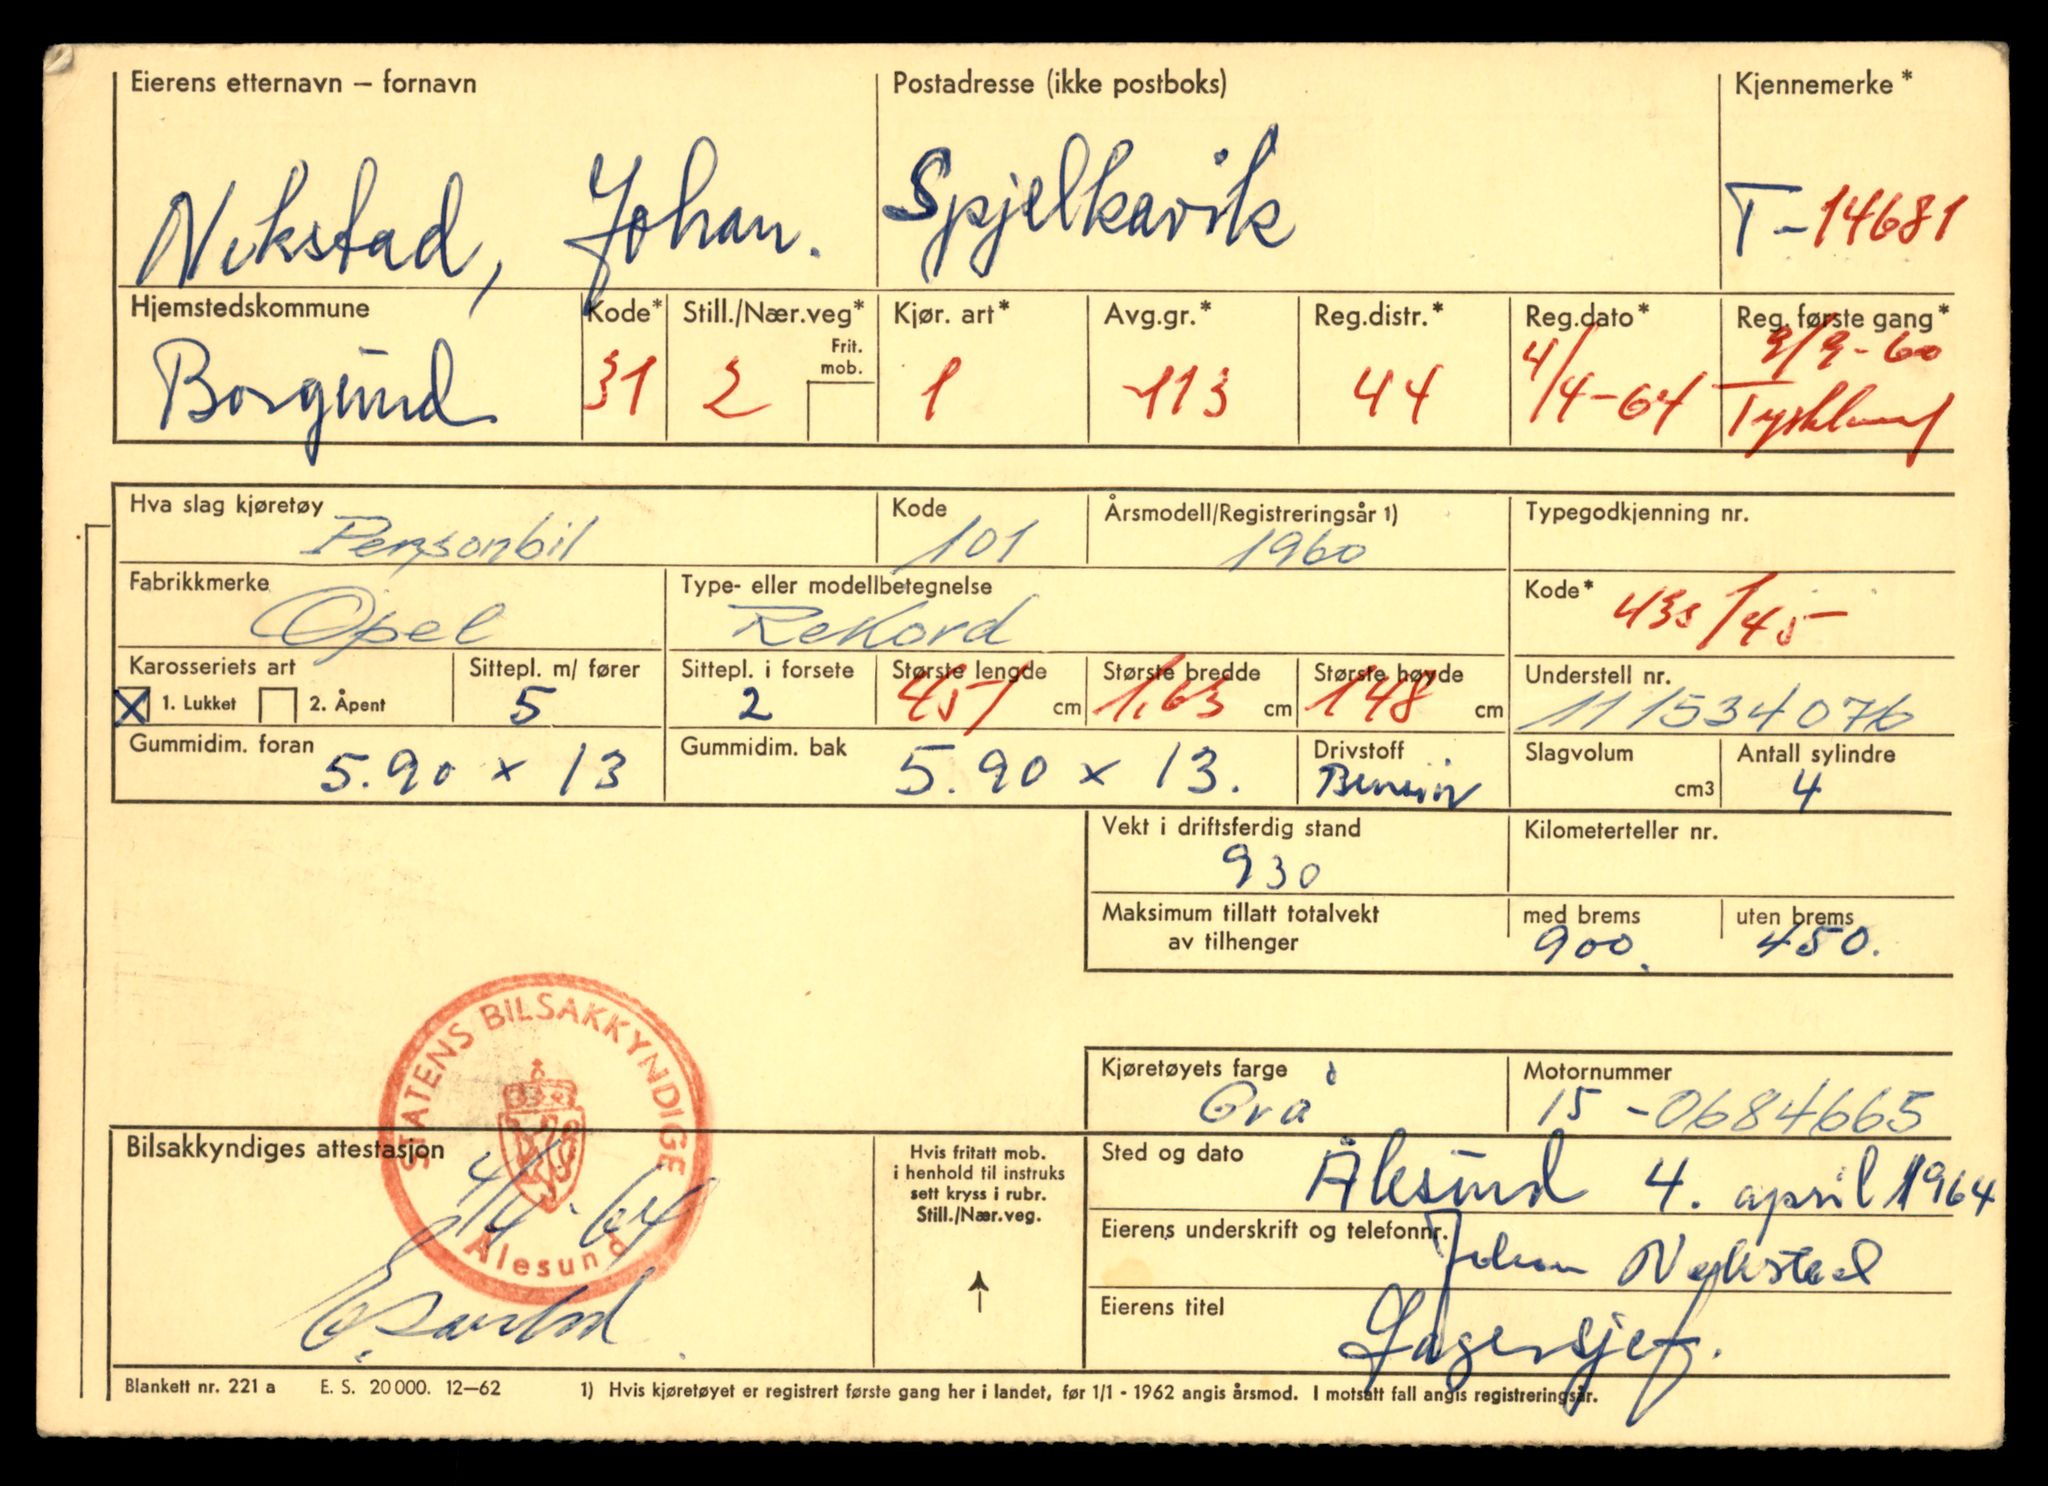 Eierens etternavn — fornavn Postadresse (ikke postboks) Kjennemerke*
Nekstad, Johan. Spjelkavik T-14681
Hjemstedskommune Kode* Still./Nær.veg* Kjør. art* Avg.gr.* Reg.distr.* Reg.dato* Reg. første gang*
Frit. mob.
Borgund 31 2 1 113 44 4/4-64 9/9-60 Tyskland
Hva slag kjøretøy Kode Årsmodell/Registreringsår 1) Typegodkjenning nr.
Personbil 101 1960
Fabrikkmerke Type- eller modellbetegnelse Kode*
Opel Rekord 435/45
Karosseriets art Sittepl. m/ fører Sittepl. i forsete Største lengde Største bredde Største høyde Understell nr.
X 1. Lukket 2. Åpent 5 2 451 cm 1,63 cm 148 cm 111534076
Gummidim. foran Gummidim. bak Drivstoff Slagvolum Antall sylindre
5.90 x 13 5.90 x 13. Bensin cm3 4
Vekt i driftsferdig stand Kilometerteller nr.
930
Maksimum tillatt totalvekt med brems uten brems
av tilhenger 900. 450.
STATENS BILSAKKYNDIGE
Ålesund
Kjøretøyets farge Motornummer
Grå 15-0684665
Bilsakkyndiges attestasjon
4/4-64
Hvis fritatt mob.
i henhold til instruks
sett kryss i rubr.
Still./Nær.veg.
Sted og dato Ålesund 4. april 1964
Eierens underskrift og telefonnr.
Johan Nekstad
Eierens titel Lagersjef.
Blankett nr. 221 a E. S. 20000. 12—62 1) Hvis kjøretøyet er registrert første gang her i landet, før 1/1 - 1962 angis årsmod. I motsatt fall angis registreringsår.